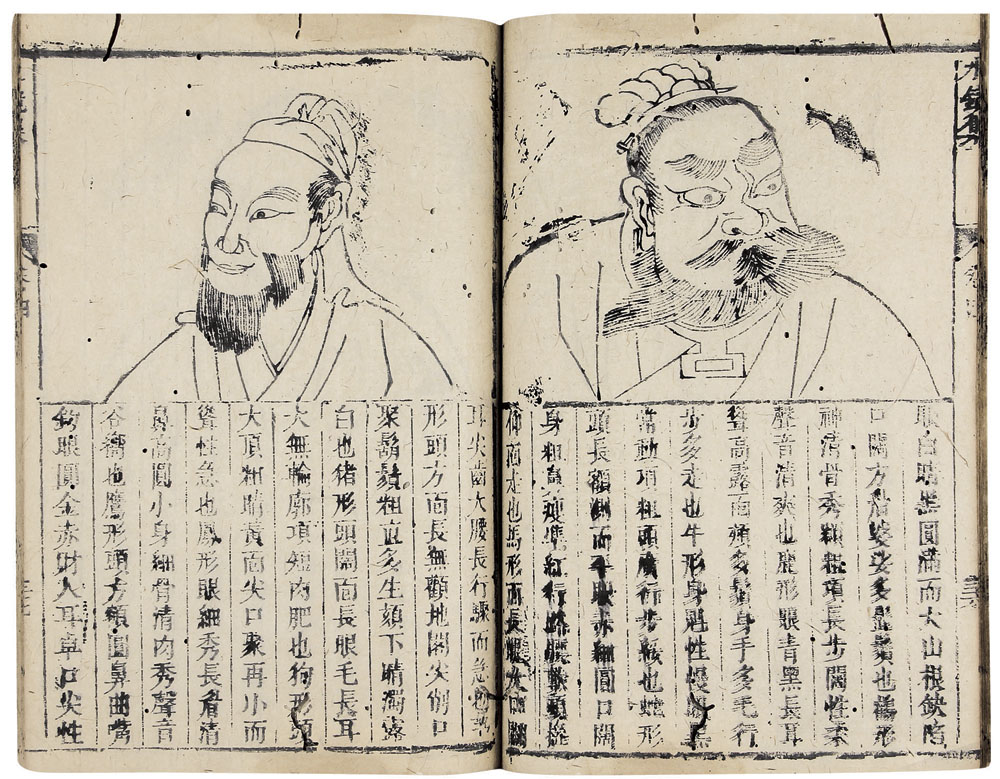 水鏡集
卷四
眼白睛黑圓滿而大山根缺
口闊方唇婆娑多鬚也形
神清骨秀粗項長步闊性柔
聲音清爽也鹿形眼青黑長耳
聳高露面多鬚身手多毛行
步多走也牛形身性慢眼黑
常動項粗頭廣行步緩也蛇形
頭長額闊而平眼赤細圓口闊
身粗準紅行路腰軟頭擺
仰而走也馬形面長眼大口闊
耳尖齒大腰長行驟而急也
形頭方面長無顴地閣尖削口
聚鬍鬚粗直多生頦下睛濁露
白也猪形頭闊面長眼毛長耳
大無輪廓項短肉肥也狗形頭
大頂粗睛黃面尖口聚再小而
聳性急也鳳形眼細秀長眉清
鼻高圓小身細骨清肉秀聲音
谷也鷹形頭方額圓鼻曲嘴
鈎眼圓金赤財入耳卓口尖性
卷四